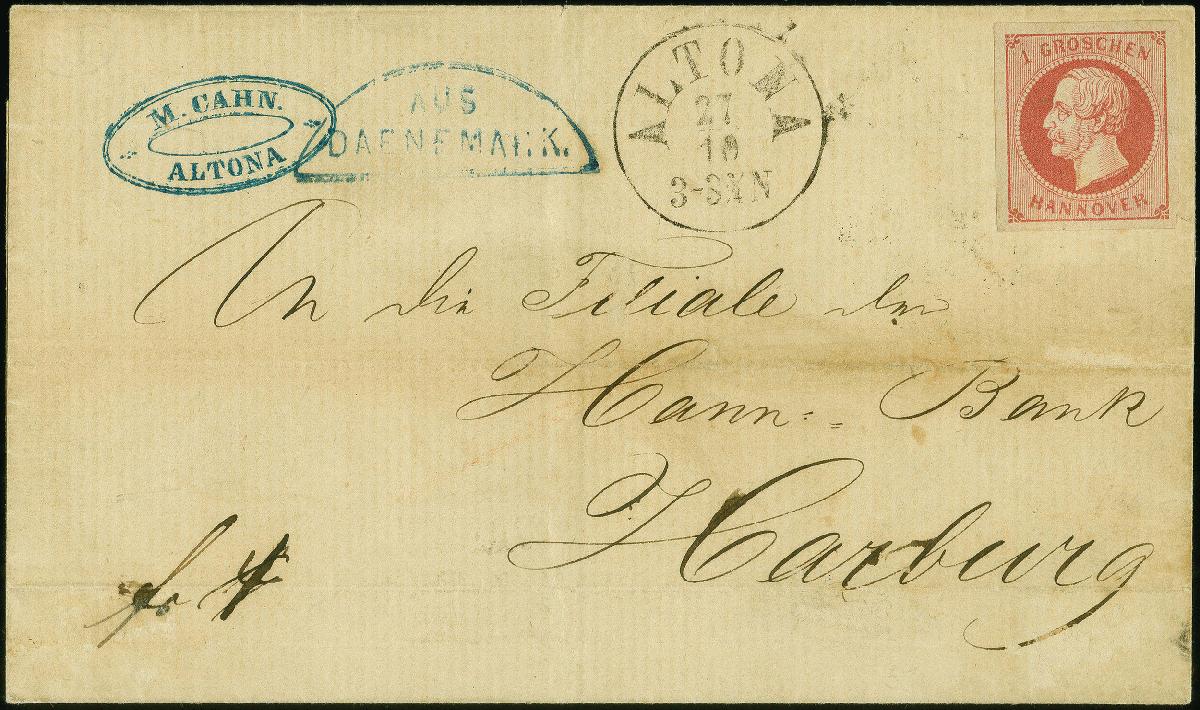 M. CAHN.
ALTONA
AUS
DAENEMARK.
ALTONA
27
10
3-8 N
1 GROSCHEN
HANNOVER
An die Filiale der
Hann: Bank
Harburg
fr